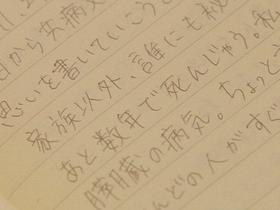 日から共病文
思いを書いていこうと
家族以外、誰にも秘
あと数年で死んじゃう。私
膵臓の病気。ちょっと
んどの人がすぐ